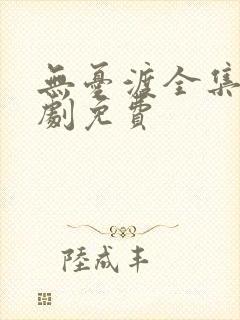 無憂渡全集
劇免費
陸成丰